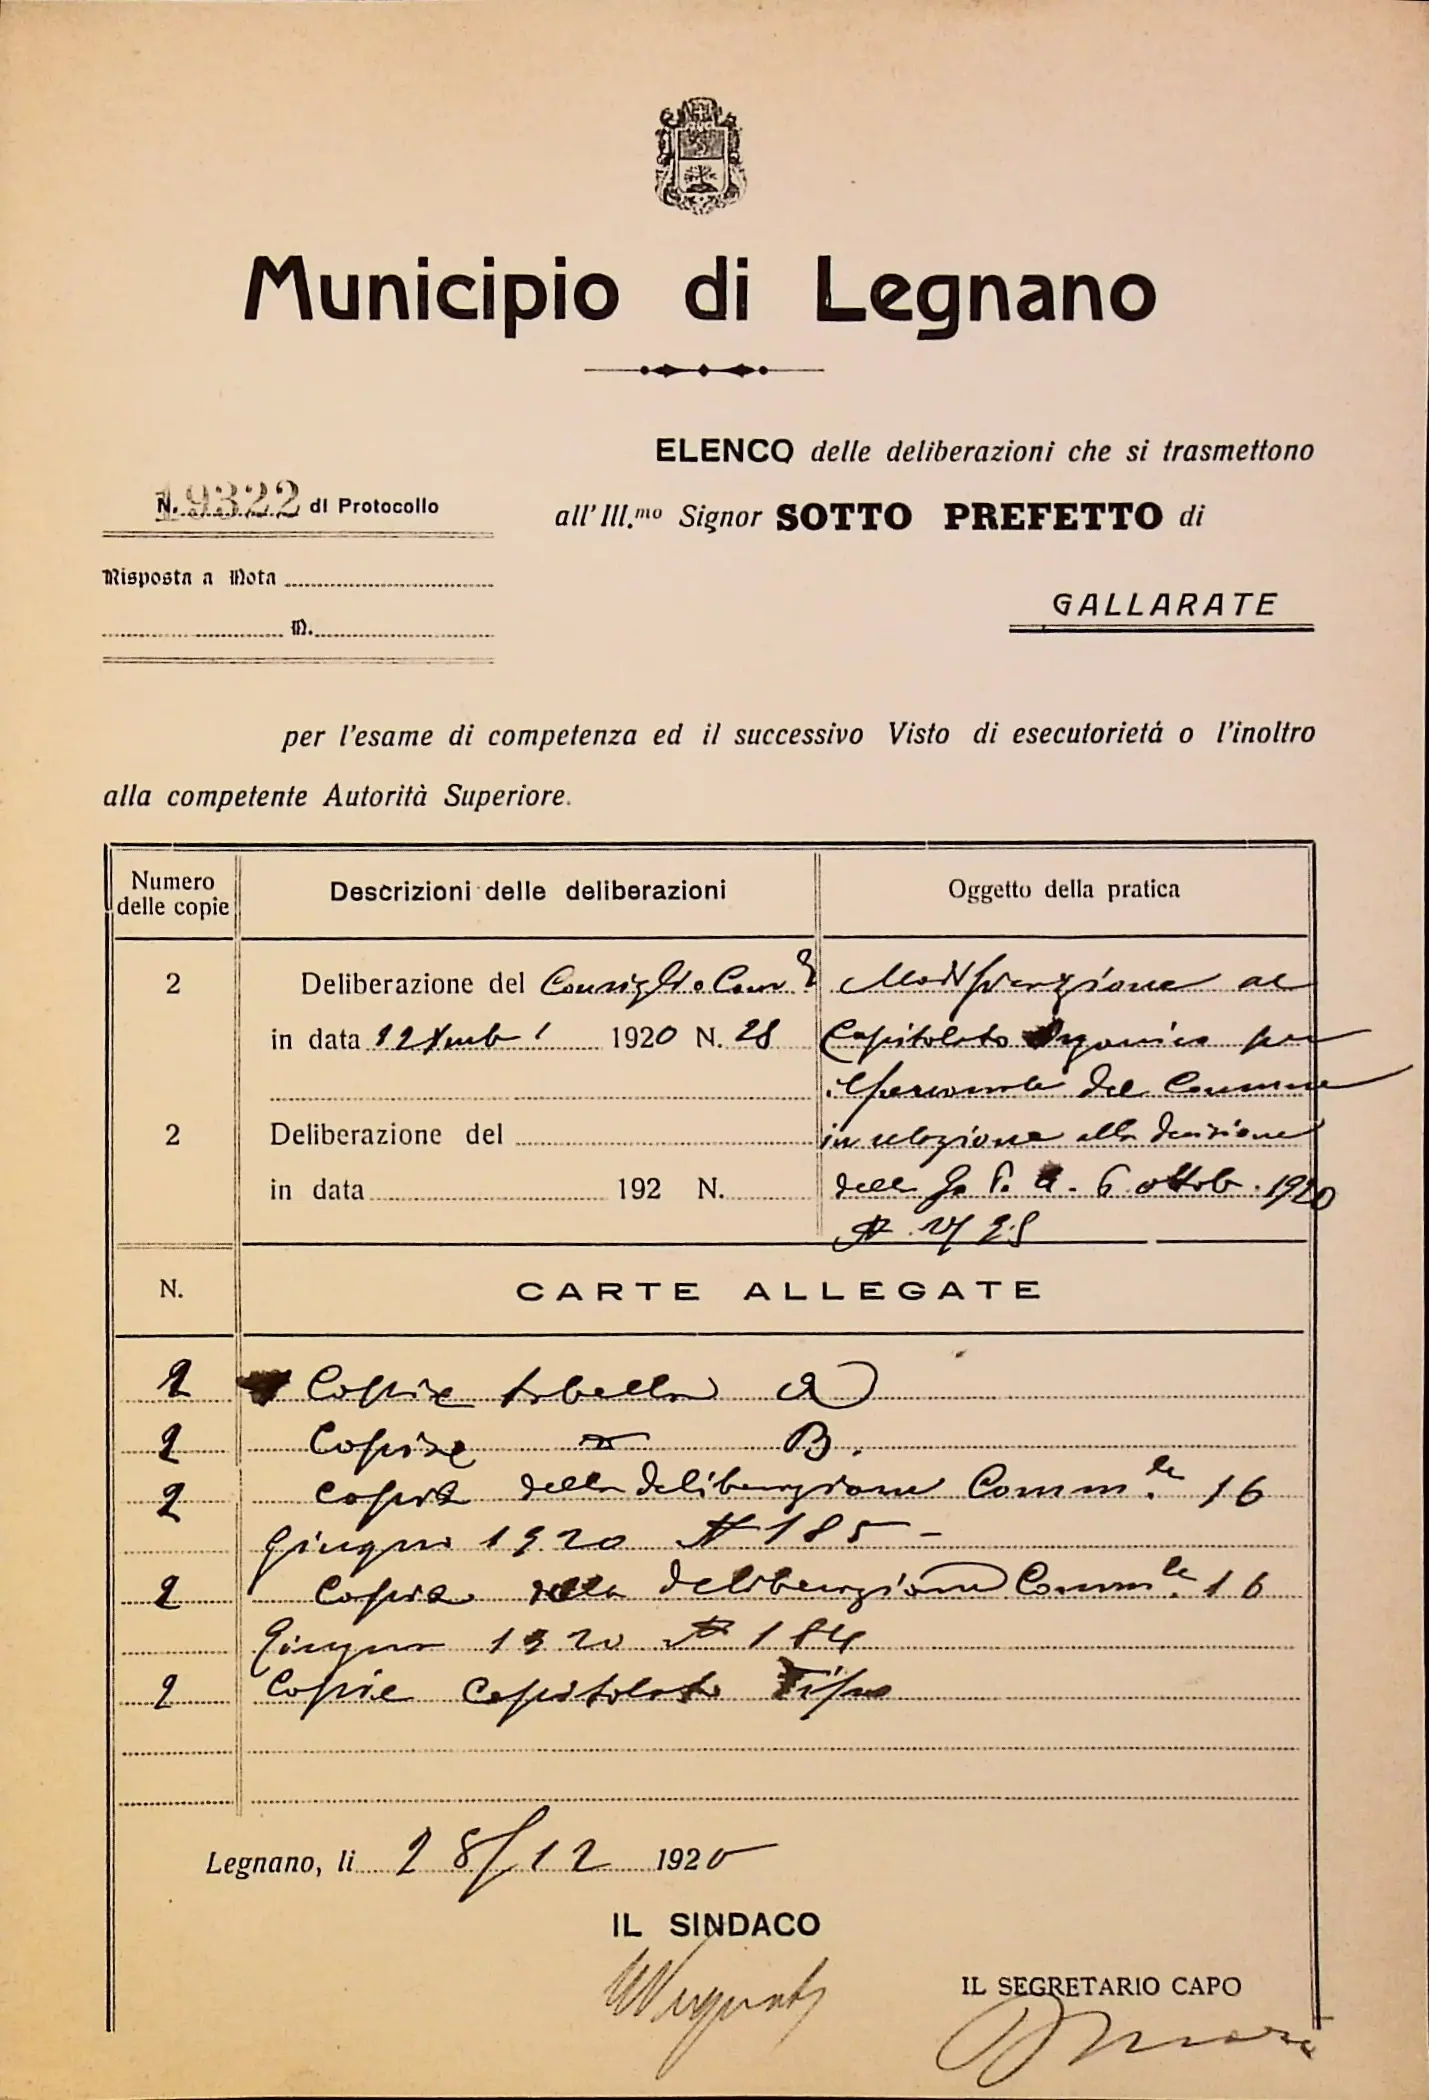 Municipio di Legnano
ELENCO delle deliberazioni che si trasmettono
N. 19322 di Protocollo
all' Ill.mo Signor SOTTO PREFETTO di
Risposta a Nota
GALLARATE
N.
per l'esame di competenza ed il successivo Visto di esecutorietà o l'inoltro
alla competente Autorità Superiore.
Numero delle copie
Descrizioni delle deliberazioni
Oggetto della pratica
2
Deliberazione del Consiglio Com.
in data 12 1920 N. 28
2
Deliberazione del
in data 192 N.
Modificazione al
Capitolato Organico per
il personale del Comune
in relazione alla decisione
della G. P. A. 6 ottob. 1920
N.
N.
CARTE ALLEGATE
2 Copie tabella A
2 Copie " B.
2 Copie della deliberazione Comm.le 16
giugno 1920 N 185 -
2 Copie della deliberazione Comm.le 16
giugno 1920 N 184
2 Copie Capitolato Tipo
Legnano, li 28/12 1920
IL SINDACO
IL SEGRETARIO CAPO